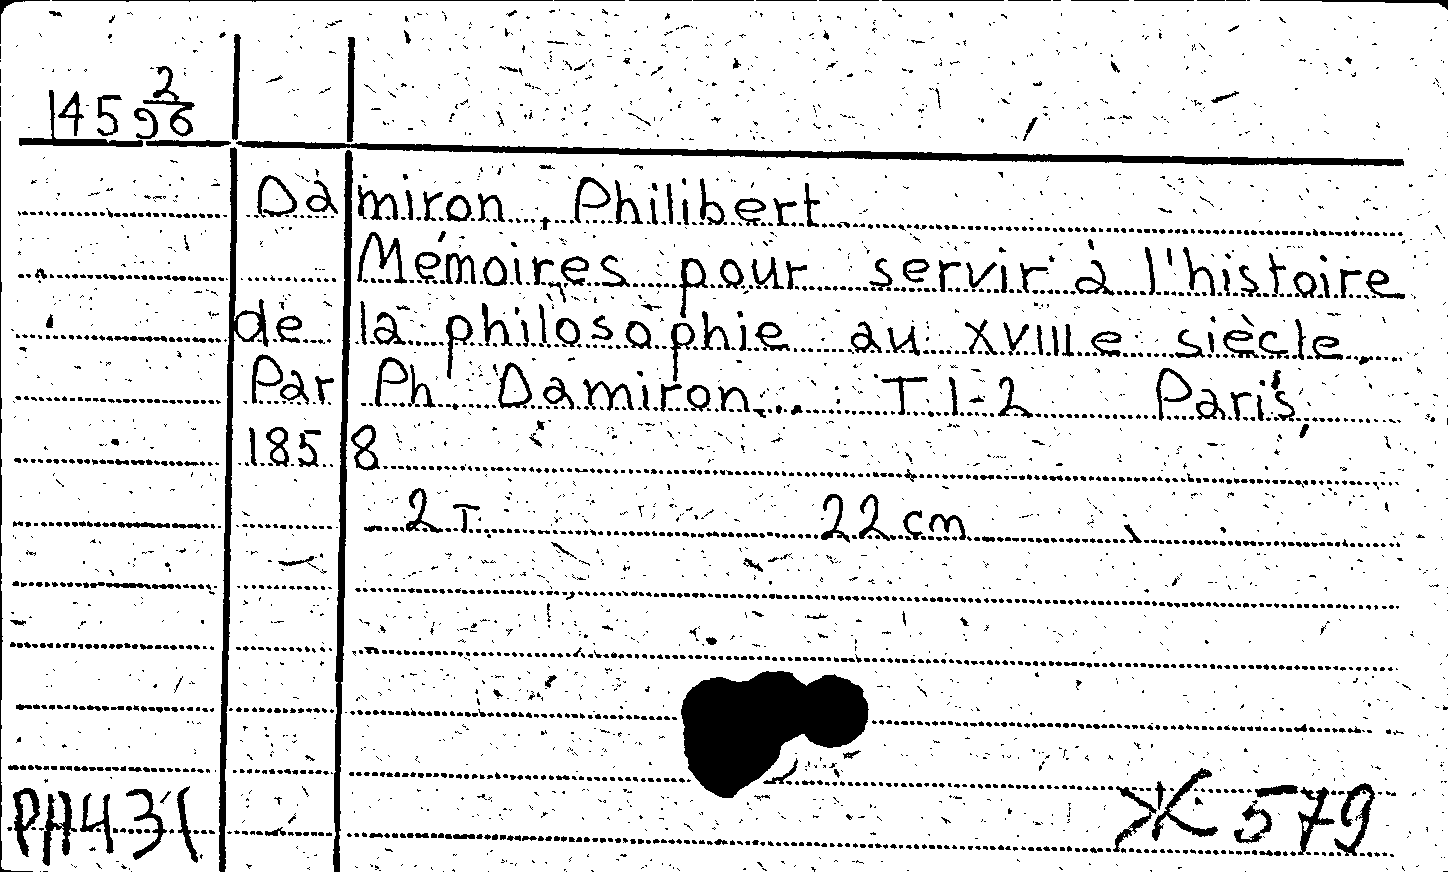 145 2/96
Damiron, Philibert
Mémoires pour servir à l'histoire
de la philosophie au XVIIIe siècle.
Par Ph. Damiron... T.1-2 Paris,
1858
2 т. 22 cm
РА431 Ж 579